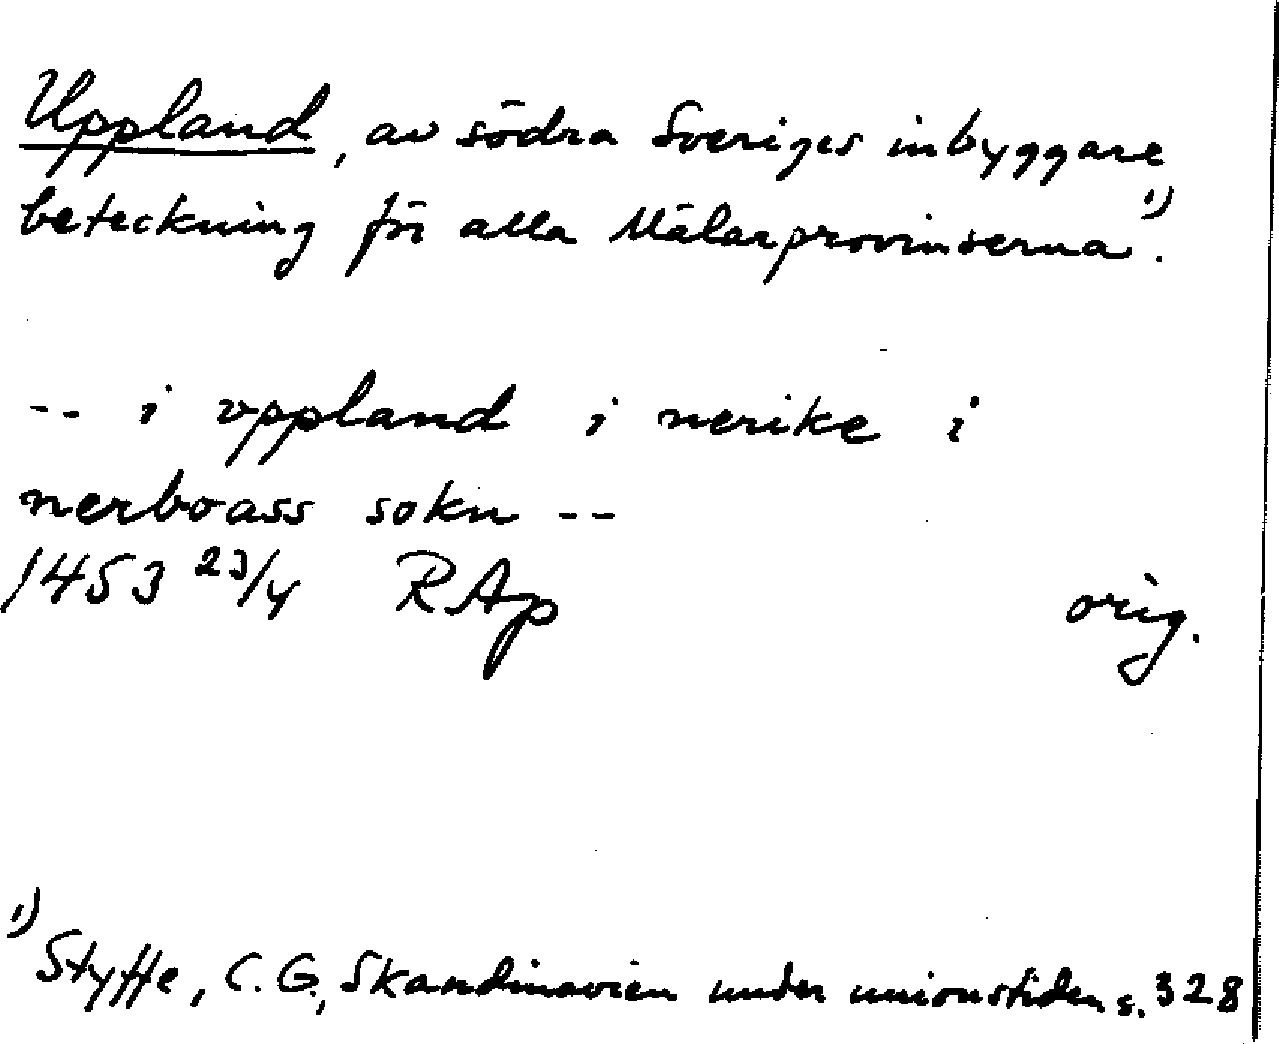 Uppland, av södra Sveriges inbyggare
beteckning för alla Mälarprovinserna 1).
-- i vppland i nerike i
nerboass sokn --
1453 23/4 RAp orig.
1) Styffe, C.G., Skandinavien under unionstiden s. 328